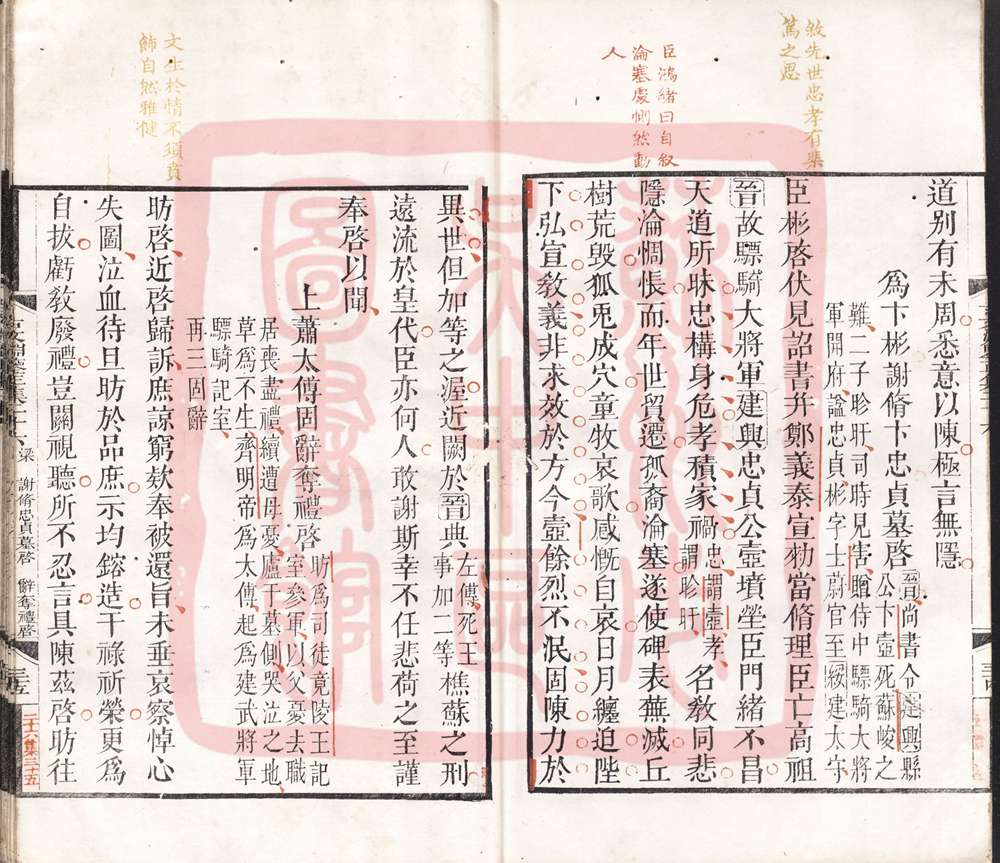 敘先世忠孝有集
篤之思
臣鴻緒曰自敘
淪塞處惻然動
人
道别有未周悉意以陳極言無隱
爲卞彬謝脩卞忠貞墓啓
晉尚書令建興縣
公卞壺死蘇峻之
難二子眕盱司時見害贈侍中驃騎大將
軍開府諡忠貞彬字士蔚官至綏建太守
臣彬啓伏見詔書并鄭義泰宣勑當脩理臣亡高祖
晉故驃騎大將軍建興忠貞公壺墳塋臣門緒不昌
天道所昧忠構身危孝積家禍
忠謂壺孝
謂眕盱
名教同悲
隱淪惆悵而年世貿遷孤裔淪塞遂使碑表蕪滅丘
樹荒毁狐兎成穴童牧哀歌感慨自哀日月纏迫陛
下弘宣教義非求效於方今壺餘烈不泯固陳力於
文生於情不須賁
飾自然雅健
異世但加等之渥近闕於晉典
左傳死王
事加二等
樵蘇之刑
遠流於皇代臣亦何人敢謝斯幸不任悲荷之至謹
奉啓以聞
上蕭太傅固辭奪禮啓
昉爲司徒竟陵王記
室參軍以父憂去職
居喪盡禮續遭母憂廬于墓側哭泣之地
草爲不生齊明帝爲太傅起爲建武將軍
驃騎記室
再三固辭
昉啓近啓歸訴庶諒窮欵奉被還旨未垂哀察悼心
失圖泣血待旦昉於品庶示均鎔造干祿祈榮更爲
自拔虧教廢禮豈闗視聽所不忍言具陳茲啓昉往
梁
謝脩忠貞墓啓
辭奪禮啓
二十六集三十五